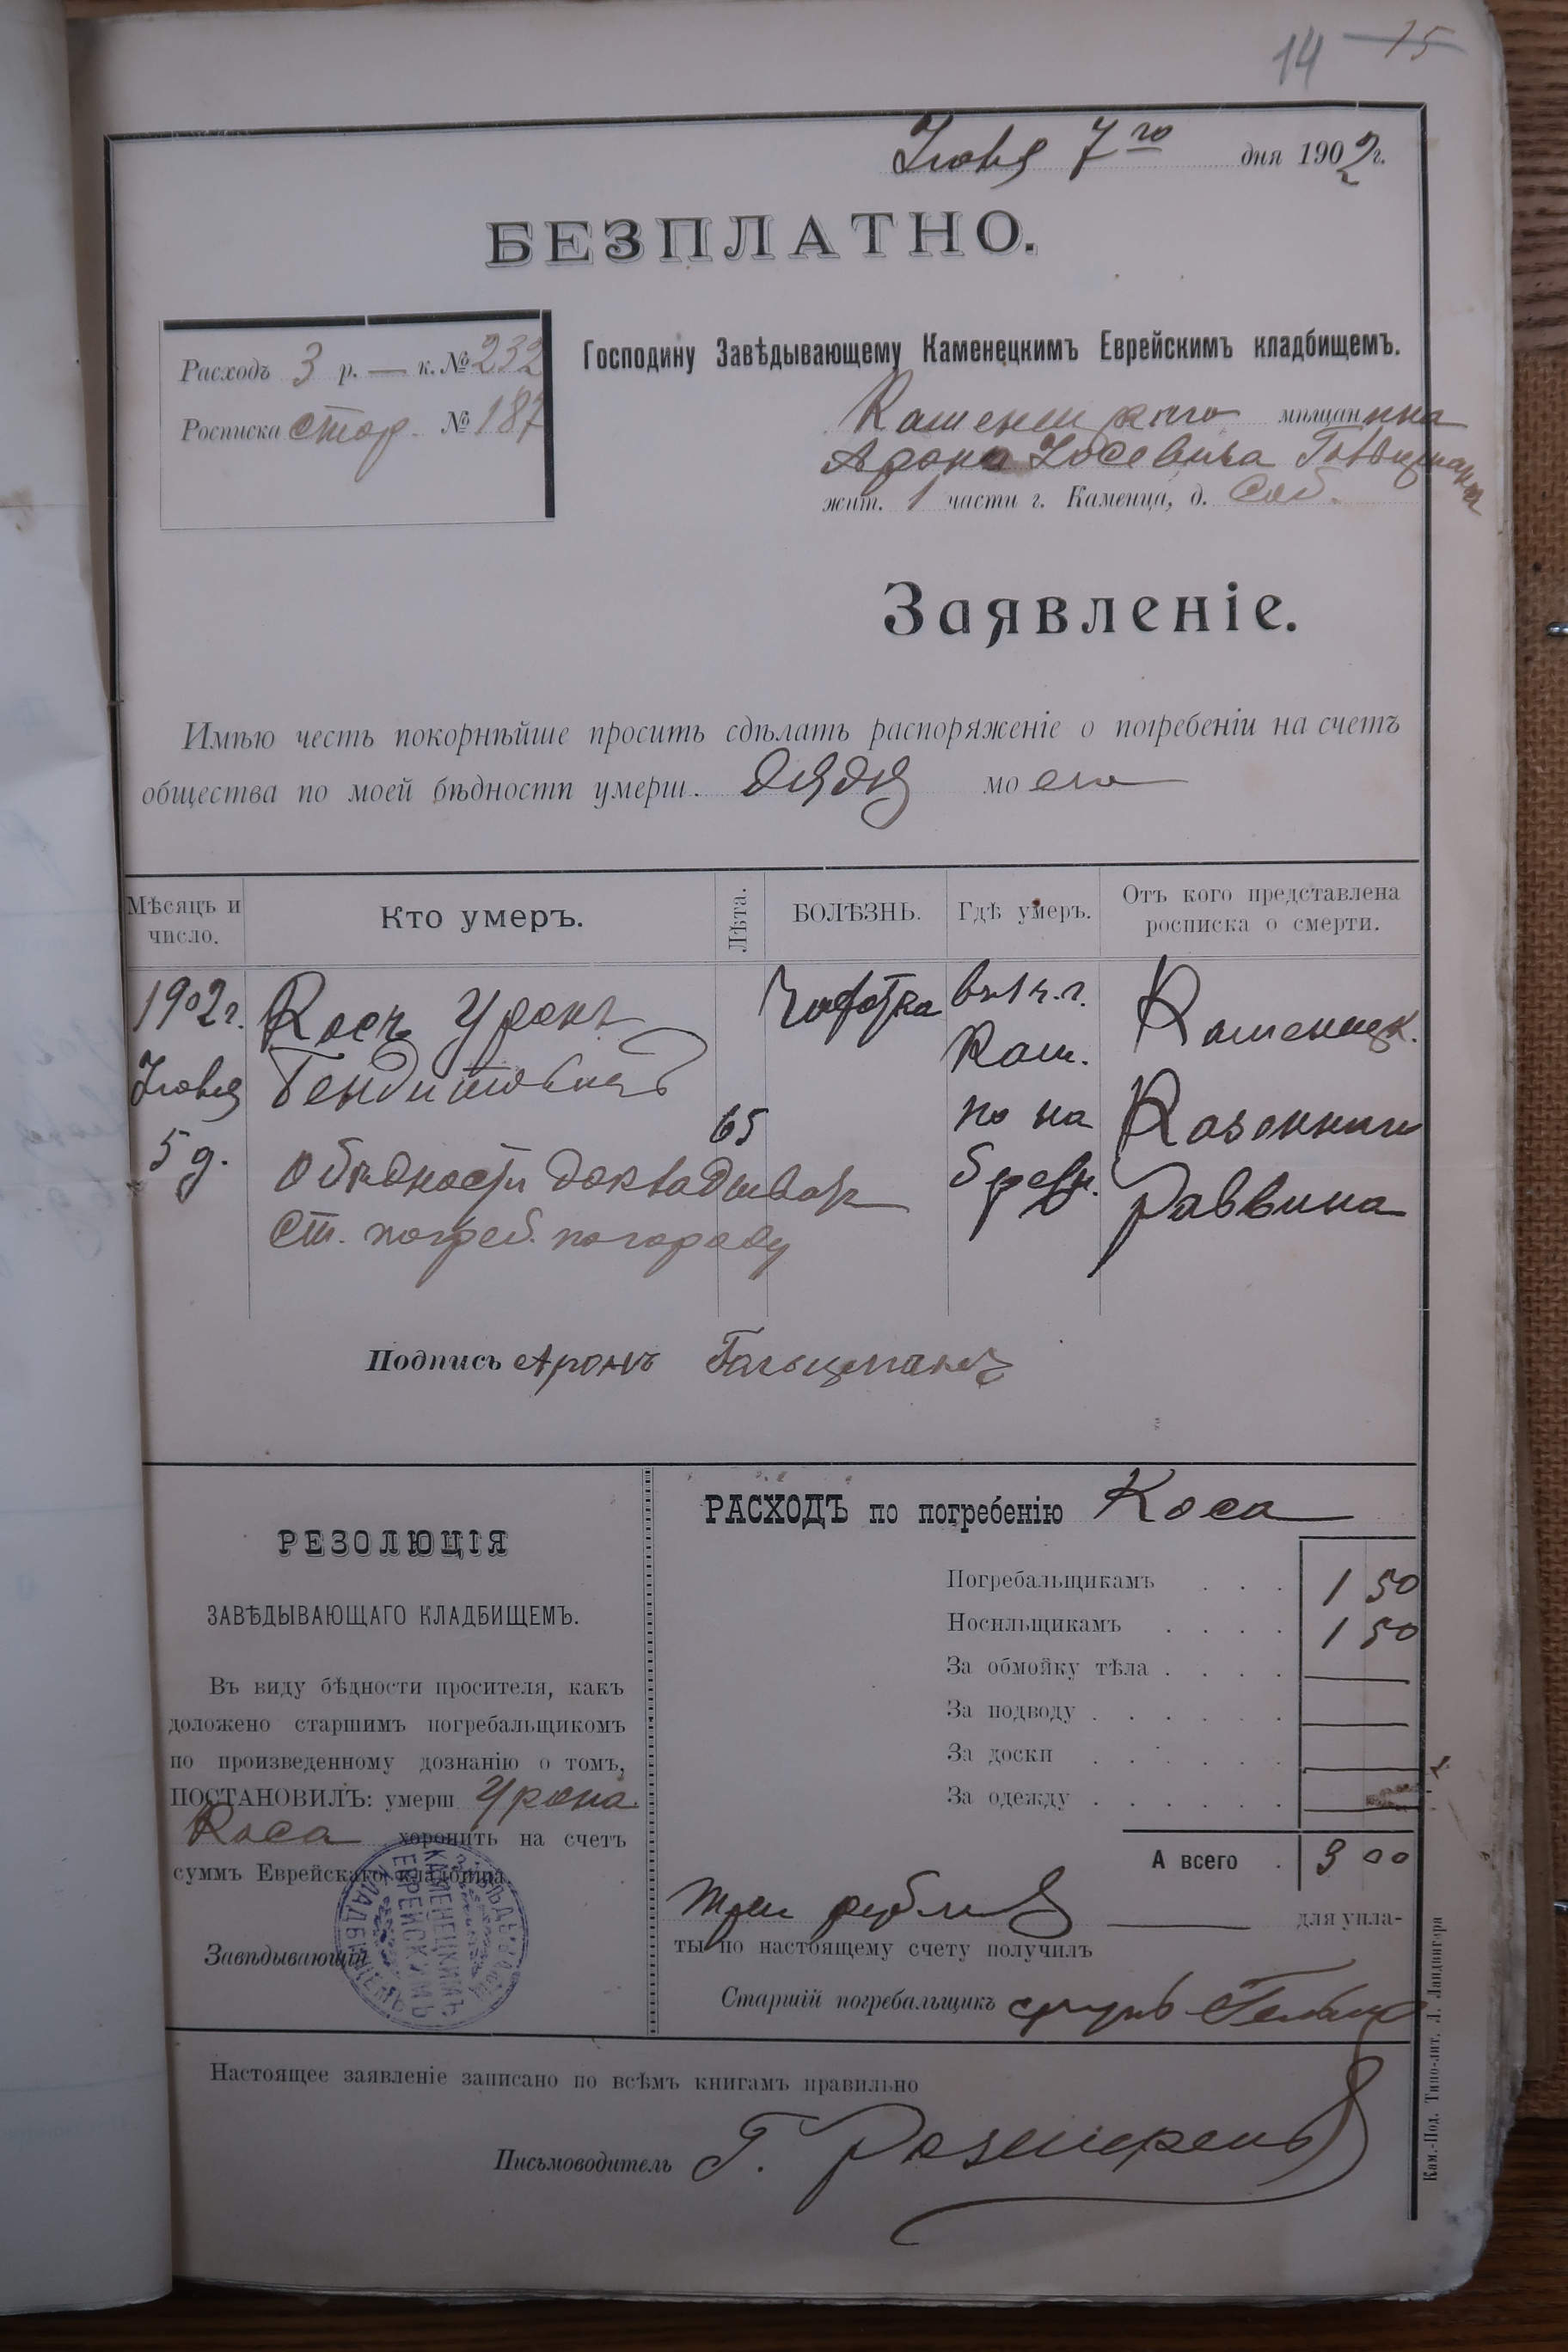 14 15
Іюня 7го дня 1902 г.
БЕЗПЛАТНО.
Расходъ 3 р. — к. № 232
Росписка стор. № 187
Господину Завѣдывающему Каменецкимъ Еврейскимъ кладбищемъ.
Каменецкаго мѣщанина
Арона Іосевича Гольцмана
жит. 1 части г. Каменца, д. Соб.
Заявленіе.
Имѣю честь покорнѣйше просить сдѣлать распоряженіе о погребеніи на счетъ
общества по моей бѣдности умерш. дядя моего
Мѣсяцъ и число.
Кто умеръ.
Лѣта.
БОЛѢЗНЬ.
Гдѣ умеръ.
Отъ кого представлена росписка о смерти.
1902 г.
Іюня
5 д.
Косъ Уронъ
65
Чахотка
Кам.
по на
Каменецк.
Казеннаго
Раввина
О бѣдности докладывалъ
Ст. погреб. погороду
Подпись Аронъ Гольцманъ
РЕЗОЛЮЦІЯ
ЗАВѢДЫВАЮЩАГО КЛАДБИЩЕМЪ.
Въ виду бѣдности просителя, какъ
доложено старшимъ погребальщикомъ
по произведенному дознанію о томъ,
ПОСТАНОВИЛЪ: умерш Урона
Коса хоронить на счетъ
суммъ Еврейскаго кладбища
Завѣдывающій
ЗАВѢДЫВАЮЩІЙ КАМЕНЕЦКИМЪ ЕВРЕЙСКИМЪ КЛАДБИЩЕМЪ
РАСХОДЪ по погребенію Коса
Погребальщикамъ . . . 1 50
Носильщикамъ . . . . 1 50
За обмойку тѣла . . . . —
За подводу . . . . . —
За доски . . . . . —
За одежду . . . . . —
А всего . 3 00
три рубля — для упла-
ты по настоящему счету получилъ
Старшій погребальщикъ
Настоящее заявленіе записано по всѣмъ книгамъ правильно
Письмоводитель Г.
Кам.-Под. Типо-лит. Л. Ландвигера